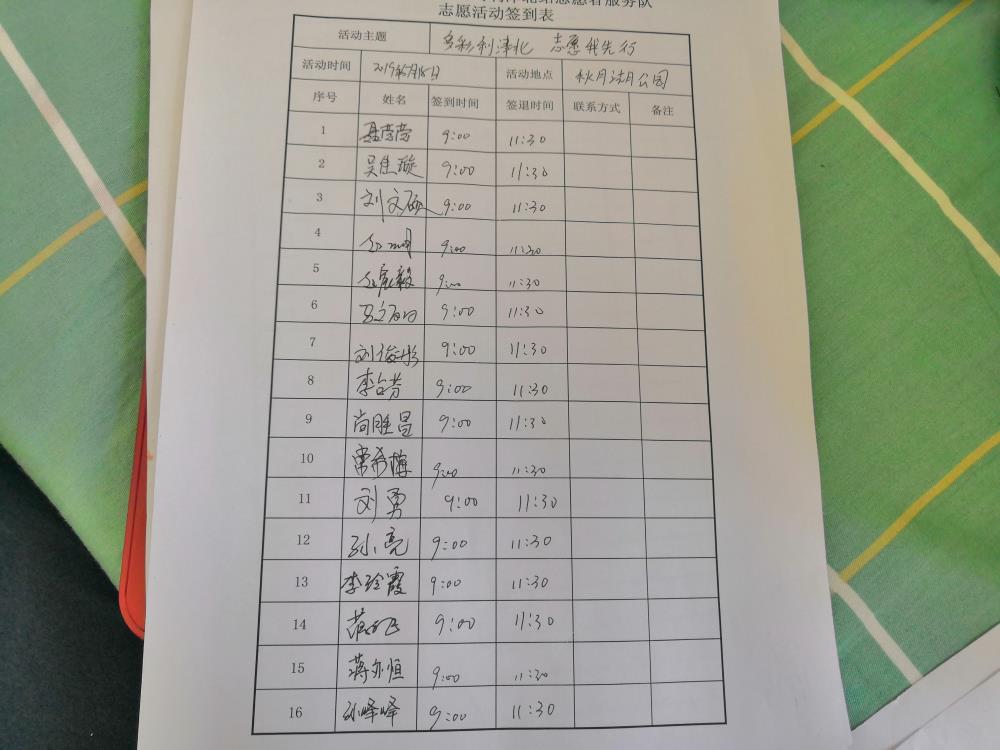 志愿者服务队
志愿活动签到表
活动主题 多彩利津北 志愿我先行
活动时间 2019年5月18日 活动地点 秋月湖月公园
序号 姓名 签到时间 签退时间 联系方式 备注
1 9:00 11:30
2 吴佳璇 9:00 11:30
3 刘文硕 9:00 11:30
4 9:00 11:30
5 9:00 11:30
6 9:00 11:30
7 刘俊彤 9:00 11:30
8 李台芬 9:00 11:30
9 尚胜昌 9:00 11:30
10 常希梅 9:00 11:30
11 刘勇 9:00 11:30
12 孙亮 9:00 11:30
13 李玲霞 9:00 11:30
14 9:00 11:30
15 蒋亦恒 9:00 11:30
16 孙峰峰 9:00 11:30